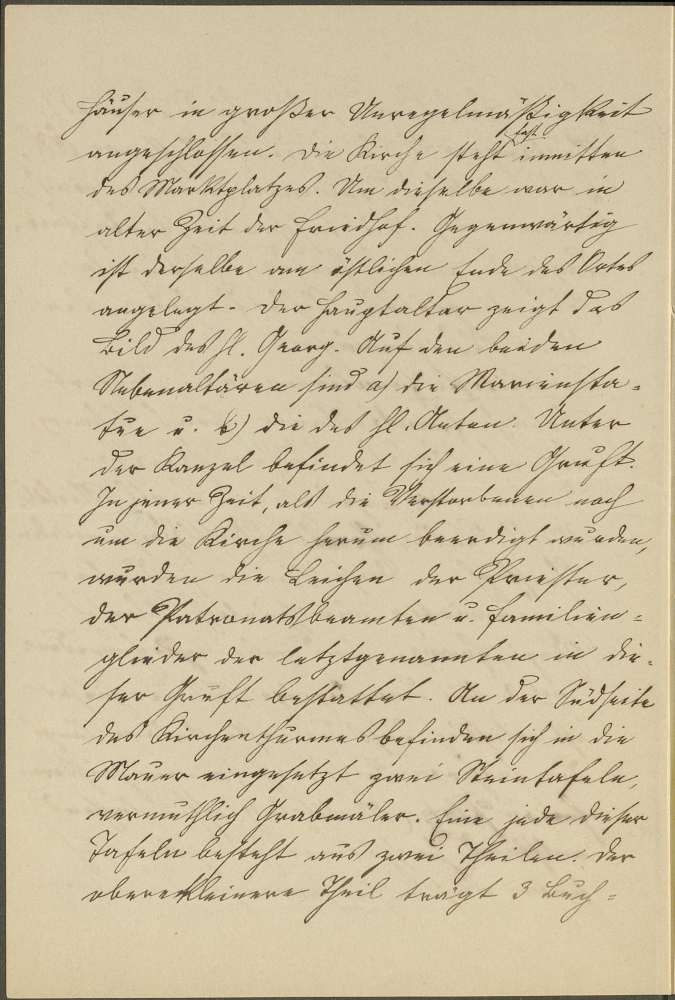 Häuser in großer Unregelmäßigkeit
angeschlossen. Die Kirche steht fast inmitten
des Marktplatzes. Um dieselbe war in
alter Zeit der Friedhof. Gegenwärtig
ist derselbe am östlichen Ende des Ortes
angelegt. Der Hauptaltar zeigt das
Bild des hl. Georg. Auf den beiden
Nebenaltären sind a) die Mariensta-
tue u. b) die des hl. Anton. Unter
der Kanzel befindet sich eine Gruft.
In jener Zeit, als die Verstorbenen noch
um die Kirche herum beerdigt wurden,
wurden die Leichen der Priester,
der Patronatsbeamten u. Familien-
glieder der letztgenannten in die-
ser Gruft bestattet. An der Südseite
des Kirchenthurmes befinden sich in die
Mauer eingesetzt zwei Steintafeln,
vermuthlich Grabmäler. Eine jede dieser
Tafeln besteht aus zwei Theilen. Der
obere kleinere Theil trägt 3 Buch-